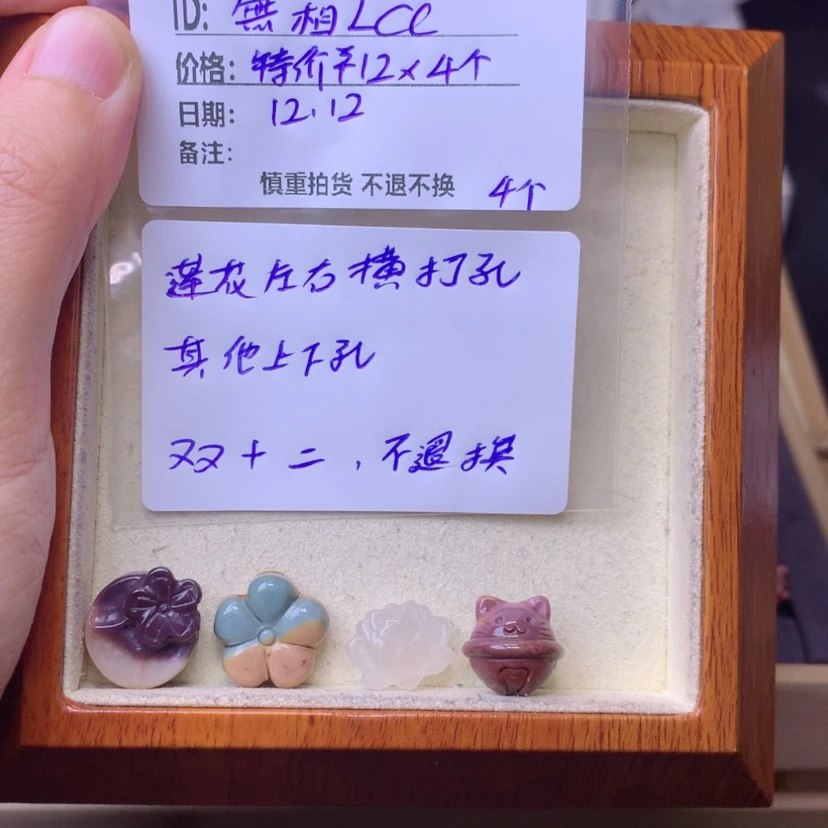 ID: 無相LCC
价格: 特价平12×4个
日期: 12.12
备注:
慎重拍货 不退不换 4个
莲花左右横打孔
其他上下孔
双十二,不退换